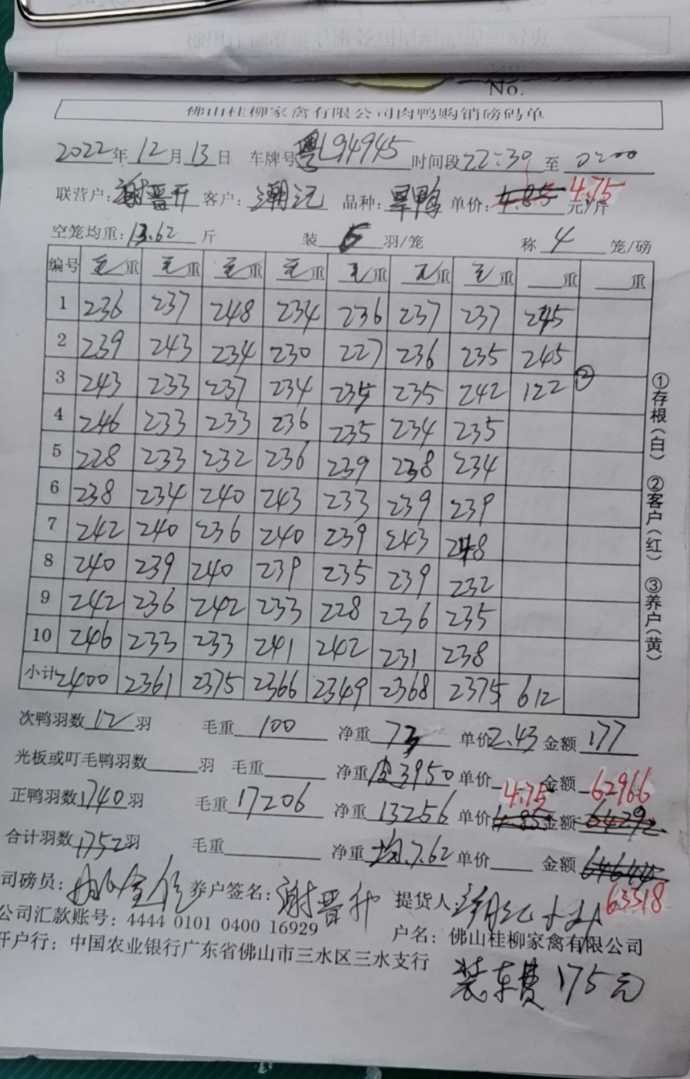 No.
佛山桂柳家禽有限公司肉鸭购销磅码单
2022年 12月 13日 车牌号 粤L94945 时间段 22:30 至 0:00
联营户: 谢晋升 客户: 潮记 品种: 旱鸭 单价: 4.85 4.75 元/斤
空笼均重: 13.62 斤 装 6 羽/笼 称 4 笼/磅
编号 毛重 毛重 毛重 毛重 毛重 毛重 毛重 重 重
1 236 237 248 234 236 237 237 245
2 239 243 234 230 227 236 235 245
3 243 233 237 234 235 235 242 122 ②
4 246 233 233 236 235 234 235
5 228 233 232 236 239 238 234
6 238 234 240 243 233 239 239
7 242 240 236 240 239 243 248
8 240 239 240 239 235 239 232
9 242 236 242 233 228 236 235
10 246 233 233 241 242 231 238
小计 2400 2361 2375 2366 2349 2368 2375 612
①存根(白) ②客户(红) ③养户(黄)
次鸭羽数 12 羽 毛重 100 净重 73 单价 2.43 金额 177
光板或叮毛鸭羽数 羽 毛重 净重 皮3950 单价 金额 62966
正鸭羽数 1740 羽 毛重 17206 净重 13256 单价 4.85 4.75 金额 64292
合计羽数 1752 羽 毛重 净重 均7.62 单价 金额 64644
63318
司磅员: 养户签名: 谢晋升 提货人
公司汇款账号: 4444 0101 0400 16929 户名: 佛山桂柳家禽有限公司
开户行: 中国农业银行广东省佛山市三水区三水支行
装车费175元